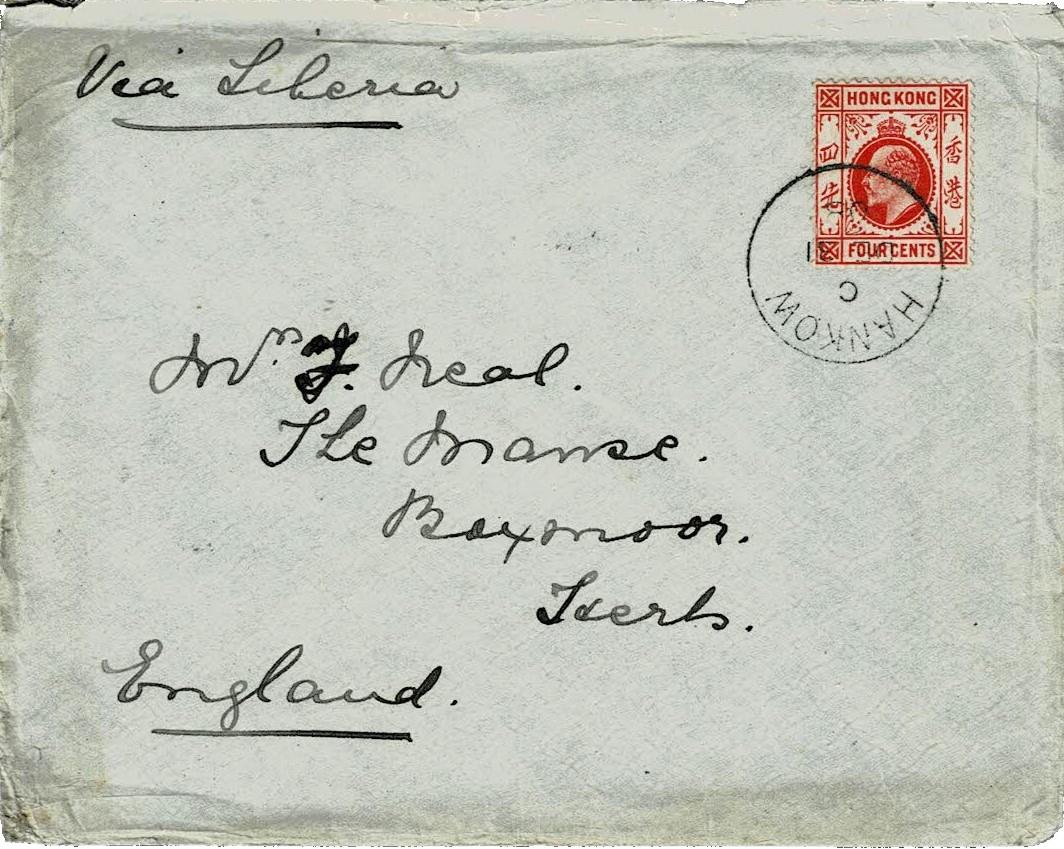 Via Siberia
HONG KONG
四先
香港
FOUR CENTS
HANKOW
C
Mrs. Neal.
The Manse.
Boxmoor.
Herts.
England.